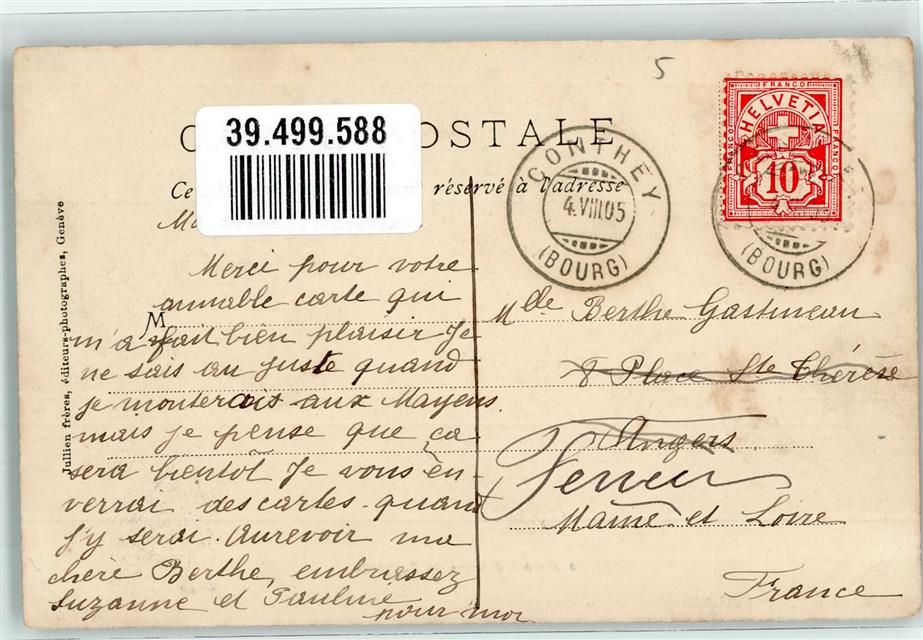 5
39.499.588
OSTALE
Ce réservé à l'adresse
FRANCO
HELVETIA
FRANCO
FRANCO
10
CONTHEY
4.VIII.05
(BOURG)
(BOURG)
Jullien frères, éditeurs-photographes, Genève
M
Merci pour votre
aimable carte qui
m'a fait bien plaisir Je
ne sais au juste quand
je monterait aux Mayens.
mais je pense que ça
sera bientôt Je vous en
verrai des cartes quand
j'y serai. Aurevoir ma
chère Berthe, embrassez
Suzanne et Pauline
pour moi
Mlle Berthe Gastineau
8 Place Ste Thérèse
Angers
Maine et Loire
France